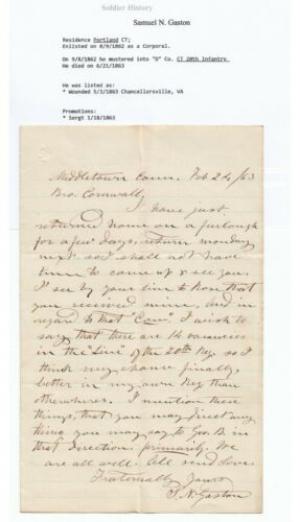 Soldier History
Samuel N. Gaston
Residence Portland CT;
Enlisted on 8/9/1862 as a Corporal.
On 9/8/1862 he mustered into "D" Co. CT 20th Infantry
He died on 6/21/1863
He was listed as:
* Wounded 5/3/1863 Chancellorsville, VA
Promotions:
* Sergt 1/18/1863
Middletown Conn. Feb 24/63
Bro. Cornwall,
I have just
returned home on a furlough
for a few days, return monday
next so I shall not have
time to come up & see you.
I see by your line to that
you received mine, and in
regard to that "Com" I wish to
say that there are 14 vacancies
in the "Line" of the 20th Reg. so I
think my chance finally,
better in my own Reg than
otherwheres. I mention these
things, that you may direct any
thing you may say to Gov. B in
that direction primarily. We
are all well. All send Love.
Fraternally Yours
S. N. Gaston